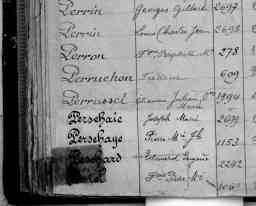 Perrin Georges Gilbert 2697
Perrin Louis Charles Jean 2698
Perron Jn Baptiste Me 278
Perruchon Frédéric 609
Perrussel Julien 1994
Persehaie Joseph Marie 2699
Persehaye Pierre Me Jh 1153
Edouard Eugène 2292
Pierre Me